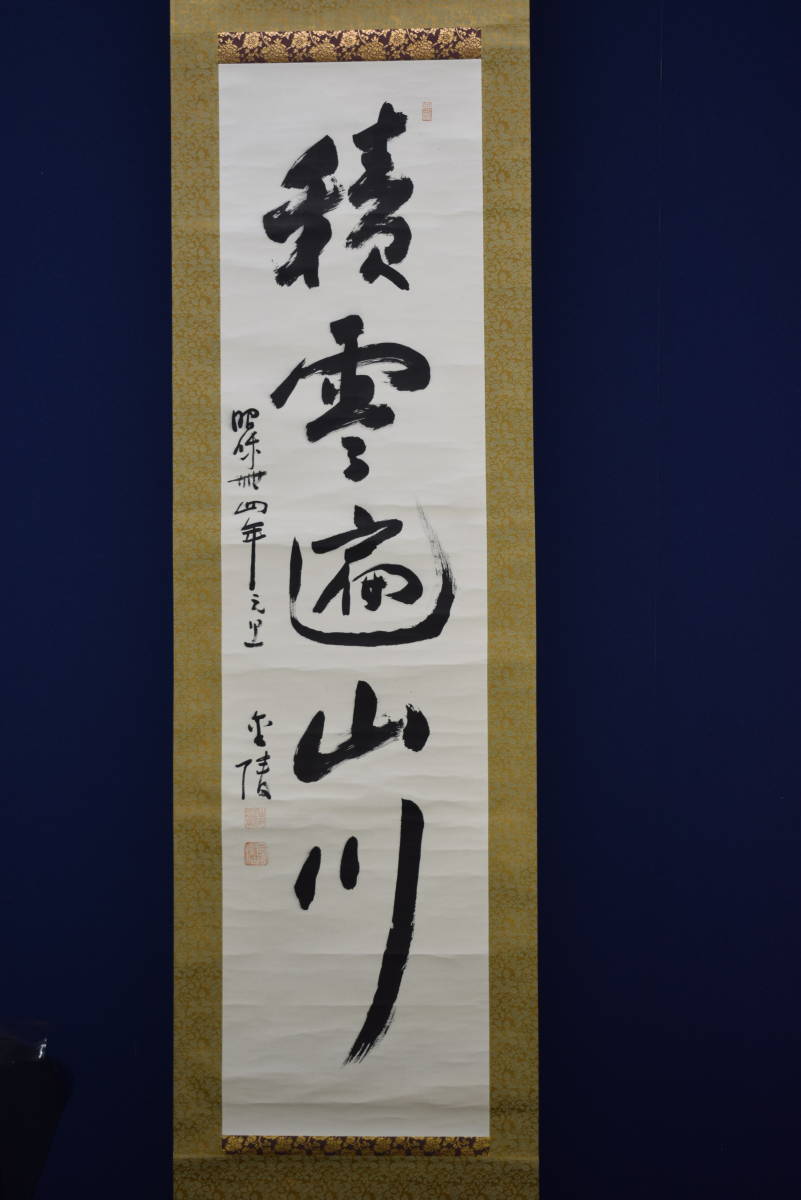 積雪遍山川
昭和卌四年元旦
金陵